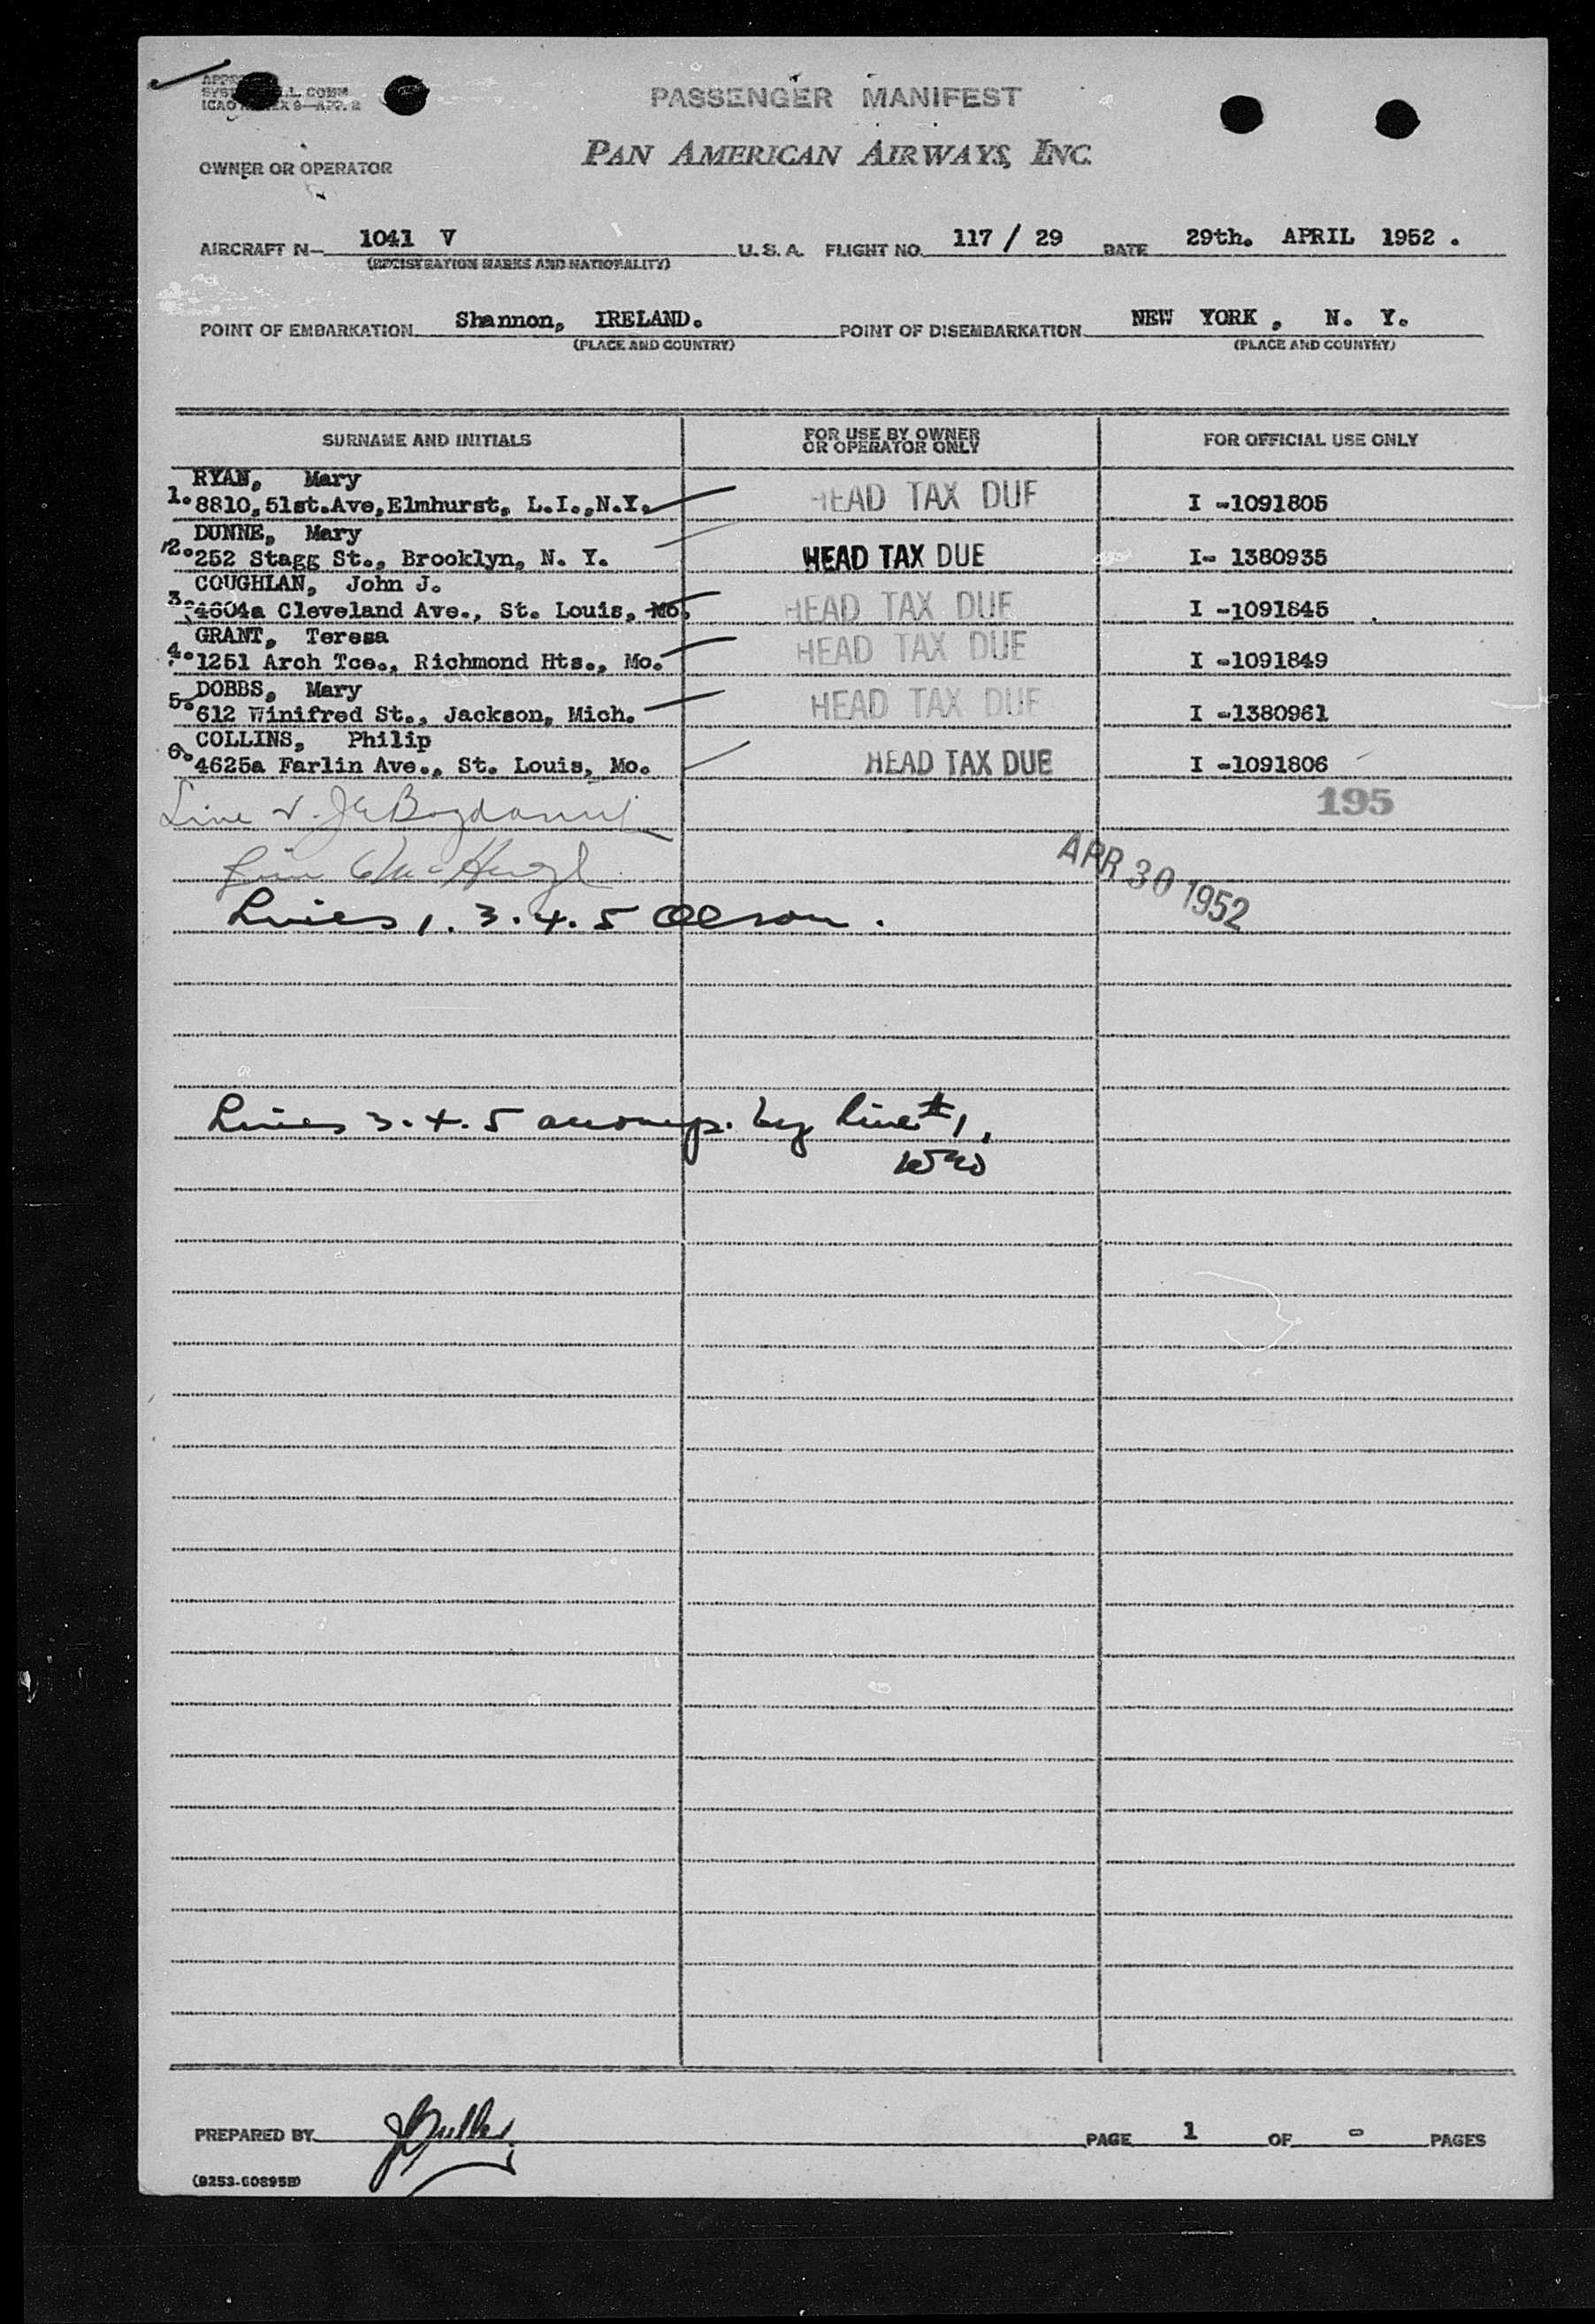 PASSENGER MANIFEST
PAN AMERICAN AIRWAYS, INC.
OWNER OR OPERATOR
AIRCRAFT N- 1041 V U.S.A. FLIGHT NO. 117 / 29 DATE 29th. APRIL 1952 .
(REGISTRATION MARKS AND NATIONALITY)
POINT OF EMBARKATION Shannon, IRELAND. POINT OF DISEMBARKATION NEW YORK , N. Y.
(PLACE AND COUNTRY) (PLACE AND COUNTRY)
SURNAME AND INITIALS FOR USE BY OWNER OR OPERATOR ONLY FOR OFFICIAL USE ONLY
RYAN, Mary
1. 8810, 51st.Ave,Elmhurst, L.I.,N.Y. HEAD TAX DUE I -1091805
DUNNE, Mary
2. 252 Stagg St., Brooklyn, N. Y. HEAD TAX DUE I- 1380935
COUGHLAN, John J.
3. 4604a Cleveland Ave., St. Louis, Mo. HEAD TAX DUE I -1091845
GRANT, Teresa
4. 1251 Arch Tce., Richmond Hts., Mo. HEAD TAX DUE I -1091849
DOBBS, Mary
5. 612 Winifred St., Jackson, Mich. HEAD TAX DUE I -1380961
COLLINS, Philip
6. 4625a Farlin Ave., St. Louis, Mo. HEAD TAX DUE I -1091806
195
Line
Line 6 McHugh
APR 30 1952
Lines 1. 3. 4. 5 Olson.
Lines 3. 4. 5 accomp. by line #1,
PREPARED BY PAGE 1 OF - PAGES
(9253-60895B)